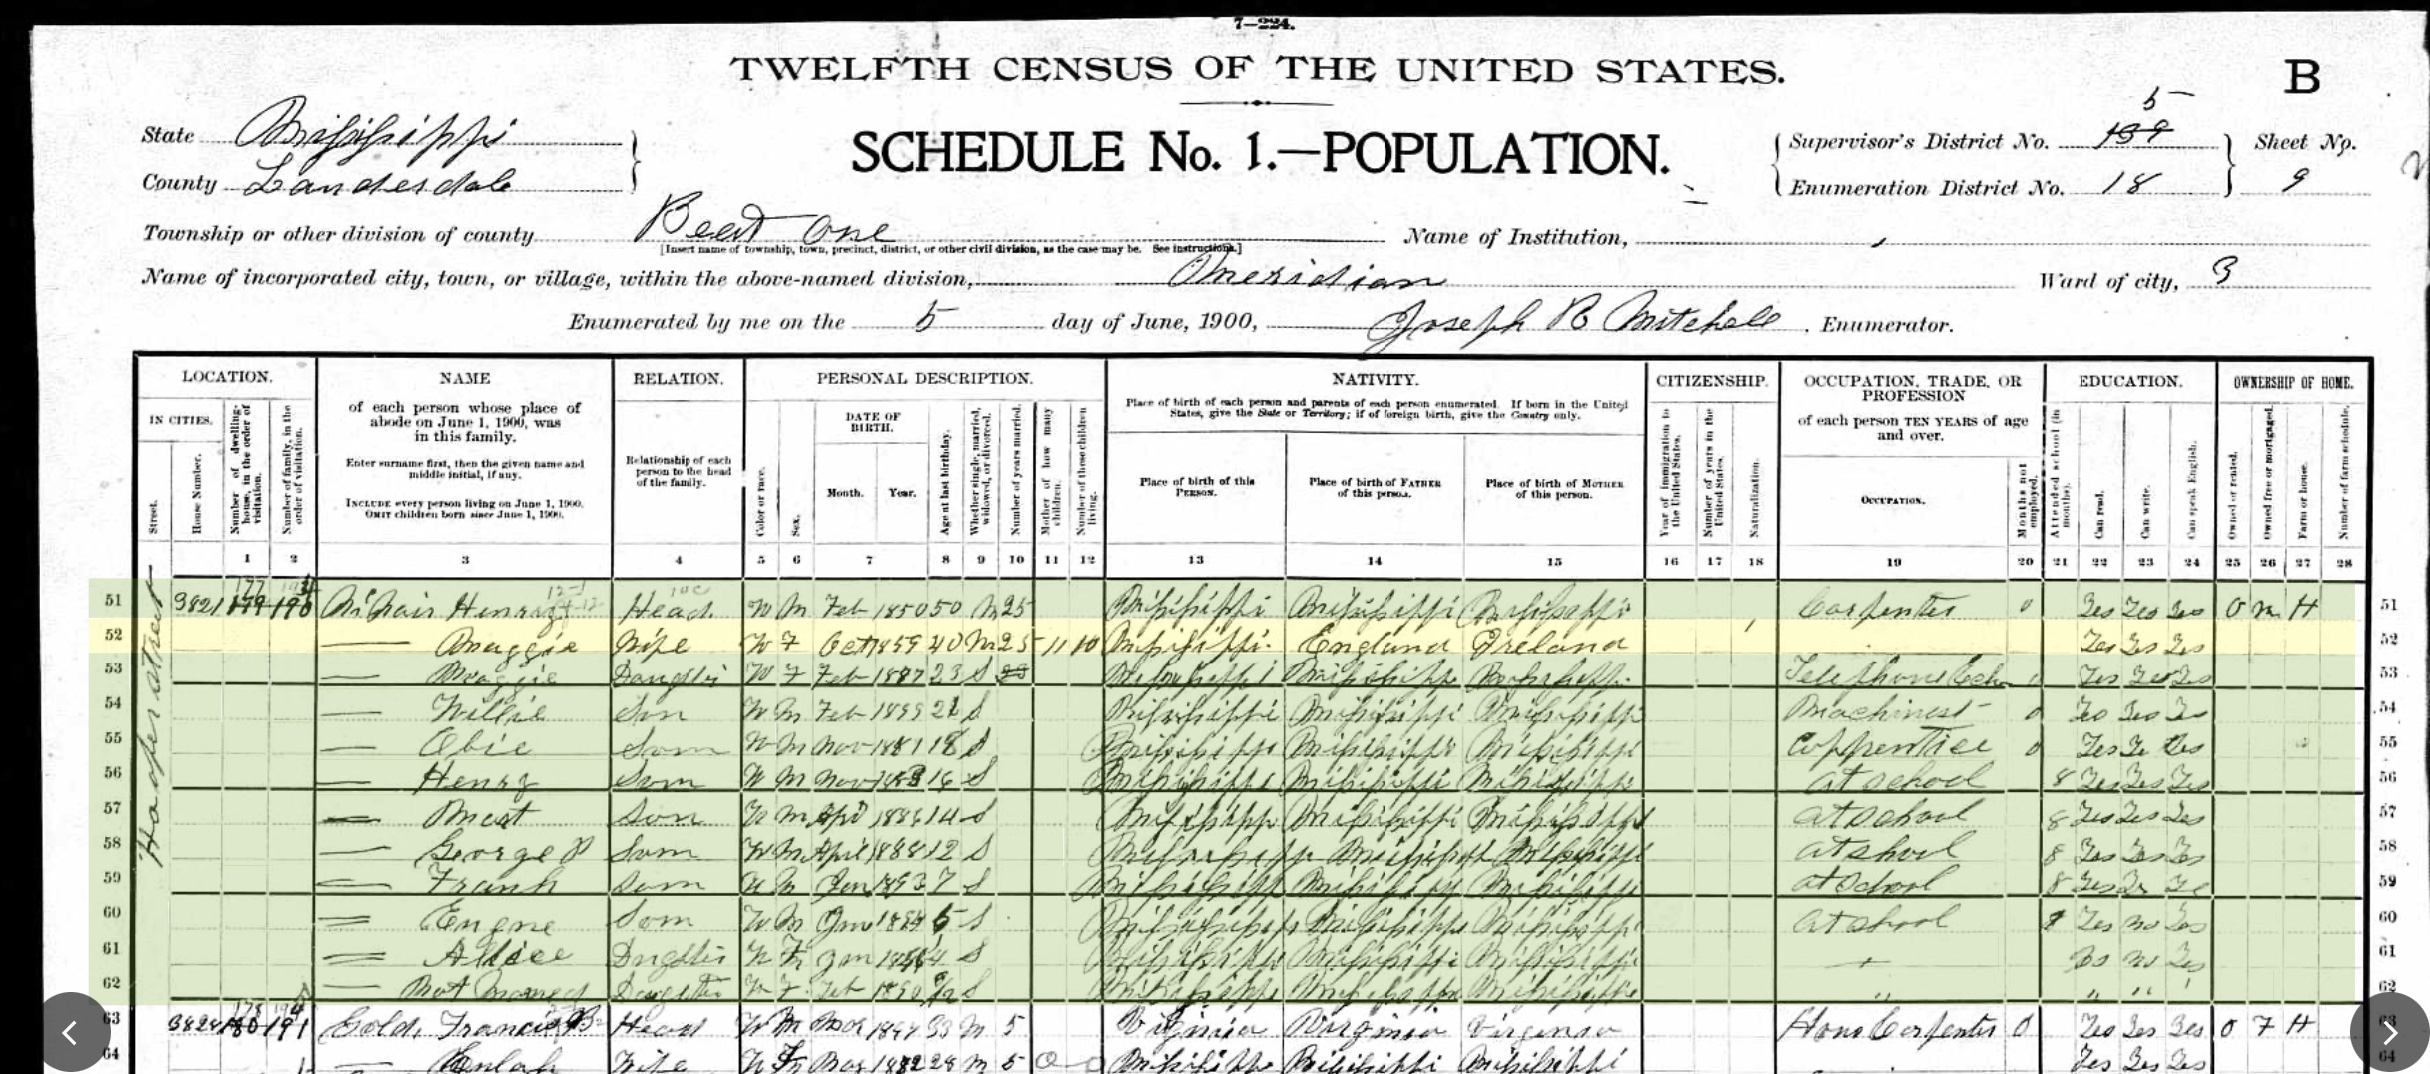 7—224.
TWELFTH CENSUS OF THE UNITED STATES.
B
State Mississippi
SCHEDULE No. 1.—POPULATION.
Supervisor's District No. 139 5
Sheet No.
County Lauderdale
Enumeration District No. 18
9
Township or other division of county Beat One
[Insert name of township, town, precinct, district, or other civil division, as the case may be. See instructions.]
Name of Institution,
Name of incorporated city, town, or village, within the above-named division, Meridian
Ward of city, 3
Enumerated by me on the 5 day of June, 1900, Joseph R Mitchell, Enumerator.
LOCATION. NAME RELATION. PERSONAL DESCRIPTION. NATIVITY. CITIZENSHIP. OCCUPATION, TRADE, OR PROFESSION EDUCATION. OWNERSHIP OF HOME.
IN CITIES.
Street.
House Number.
Number of dwelling-house, in the order of visitation.
Number of family, in the order of visitation.
of each person whose place of abode on June 1, 1900, was in this family.
Enter surname first, then the given name and middle initial, if any.
INCLUDE every person living on June 1, 1900. OMIT children born since June 1, 1900.
Relationship of each person to the head of the family.
Color or race.
Sex.
DATE OF BIRTH.
Month. Year.
Age at last birthday.
Whether single, married, widowed, or divorced.
Number of years married.
Mother of how many children.
Number of these children living.
Place of birth of each person and parents of each person enumerated. If born in the United States, give the State or Territory; if of foreign birth, give the Country only.
Place of birth of this PERSON.
Place of birth of FATHER of this person.
Place of birth of MOTHER of this person.
Year of immigration to the United States.
Number of years in the United States.
Naturalization.
of each person TEN YEARS of age and over.
OCCUPATION.
Months not employed.
Attended school (in months).
Can read.
Can write.
Can speak English.
Owned or rented.
Owned free or mortgaged.
Farm or house.
Number of farm schedule.
1 2 3 4 5 6 7 8 9 10 11 12 13 14 15 16 17 18 19 20 21 22 23 24 25 26 27 28
Hooper street
51 3821 179 190 Henry Head W M Feb 1850 50 M 25 Mississippi Mississippi Mississippi Carpenter 0 Yes Yes Yes O M H 51
52 — Maggie Wife W F Oct 1859 40 M 25 11 10 Mississippi England Ireland Yes Yes Yes 52
53 — Maggie Daughter W F Feb 1887 23 S 23 Mississippi Mississippi Mississippi Telephone Yes Yes Yes 53
54 — Willie Son W M Feb 1899 21 S Mississippi Mississippi Mississippi Machinest 0 Yes Yes Yes 54
55 — Obie Son W M Nov 1881 18 S Mississippi Mississippi Mississippi Apprentice 0 Yes Yes Yes 55
56 — Henry Son W M Nov 1883 16 S Mississippi Mississippi Mississippi at school 8 Yes Yes Yes 56
57 — Son W M Apr 1886 14 S Mississippi Mississippi Mississippi at school 8 Yes Yes Yes 57
58 — George P Son W M April 1888 12 S Mississippi Mississippi Mississippi at school 8 Yes Yes Yes 58
59 — Frank Son W M Jan 1893 7 S Mississippi Mississippi Mississippi at school 8 Yes Yes Yes 59
60 — Eugne Son W M 1894 5 S Mississippi Mississippi Mississippi at school Yes no Yes 60
61 — Allice Daughter W F Jan 4 S Mississippi Mississippi Mississippi no Yes 61
62 — Not Named Daughter W F Feb S Mississippi Mississippi Mississippi " " 62
63 3824 180 191 Francis B Head W M 33 M 5 Virginia Virginia Virginia House Carpenter 0 Yes Yes Yes O F H 63
64 Wife W F Mar 28 M 5 0 0 Mississippi Mississippi Mississippi Yes Yes Yes 64